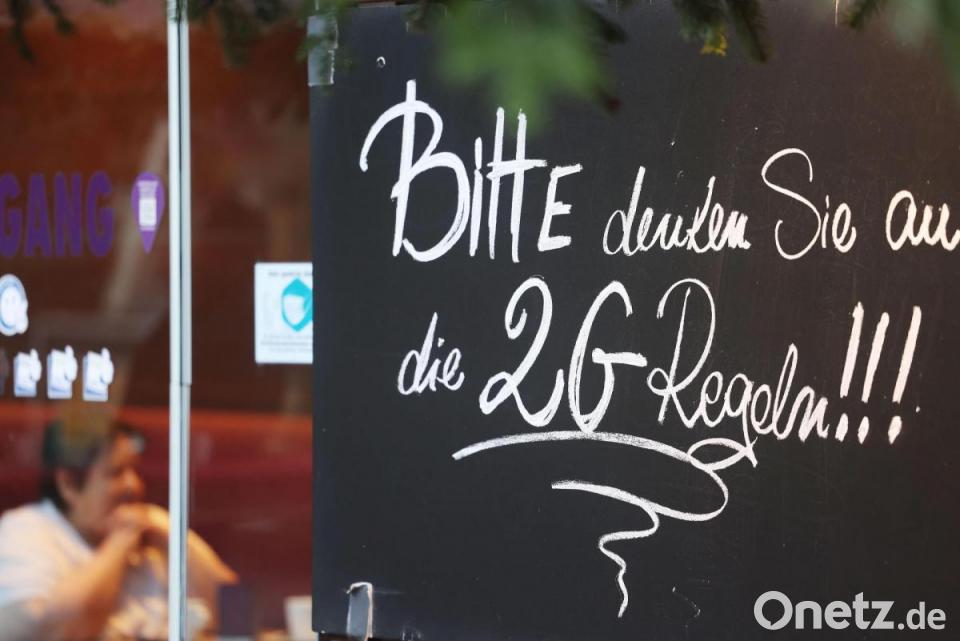 BittE denken Sie an
die 2G Regeln!!!
GANG
Onetz.de